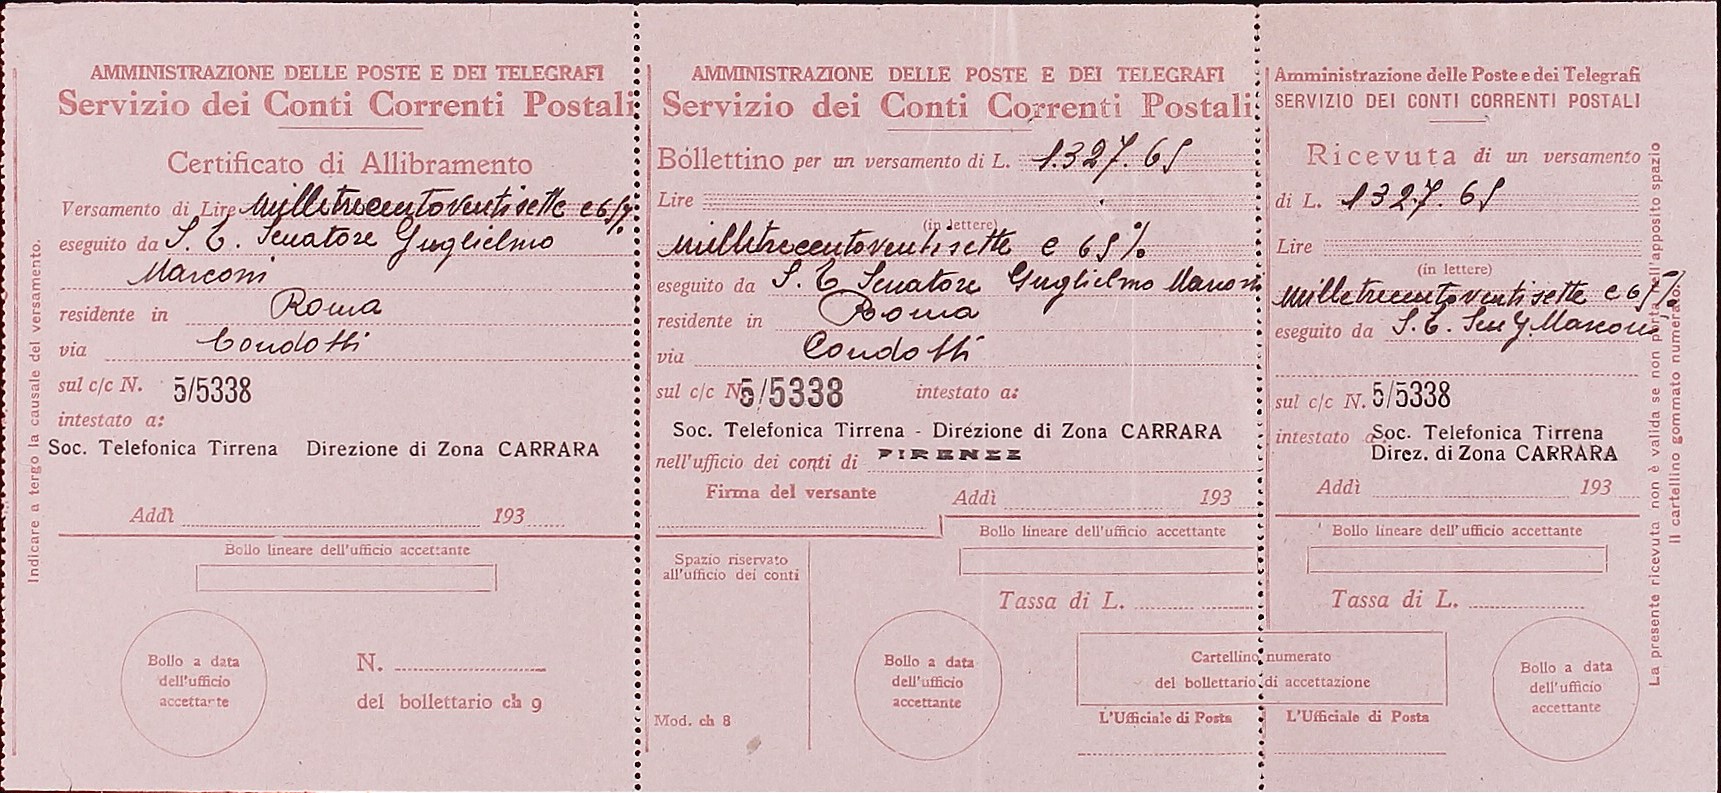 AMMINISTRAZIONE DELLE POSTE E DEI TELEGRAFI
Servizio dei Conti Correnti Postali
Certificato di Allibramento
Versamento di Lire milletrecentoventisette e 65%
eseguito da S. E. Senatore Guglielmo
Marconi
residente in Roma
via Condotti
sul c/c N. 5/5338
intestato a:
Soc. Telefonica Tirrena Direzione di Zona CARRARA
Addì 193
Bollo lineare dell'ufficio accettante
Bollo a data
dell'ufficio
accettante
N.
del bollettario ch 9
Indicare a tergo la causale del versamento.
AMMINISTRAZIONE DELLE POSTE E DEI TELEGRAFI
Servizio dei Conti Correnti Postali
Bollettino per un versamento di L. 1.327.65
Lire
(in lettere)
milletrecentoventisette e 65%
eseguito da S. E. Senatore Guglielmo Marconi
residente in Roma
via Condotti
sul c/c N. 5/5338 intestato a:
Soc. Telefonica Tirrena - Direzione di Zona CARRARA
nell'ufficio dei conti di FIRENZE
Firma del versante
Addì 193
Bollo lineare dell'ufficio accettante
Spazio riservato
all'ufficio dei conti
Tassa di L.
Bollo a data
dell'ufficio
accettante
Cartellino numerato
del bollettario di accettazione
Mod. ch 8
L'Ufficiale di Posta
Amministrazione delle Poste e dei Telegrafi
SERVIZIO DEI CONTI CORRENTI POSTALI
Ricevuta di un versamento
di L. 1327.65
Lire
(in lettere)
milletrecentoventisette e 65%
eseguito da S. E. Sen G. Marconi
sul c/c N. 5/5338
intestato a Soc. Telefonica Tirrena
Direz. di Zona CARRARA
Addì 193
Bollo lineare dell'ufficio accettante
Tassa di L.
L'Ufficiale di Posta
Bollo a data
dell'ufficio
accettante
La presente ricevuta non è valida se non porta nell'apposito spazio
il cartellino gommato numerato